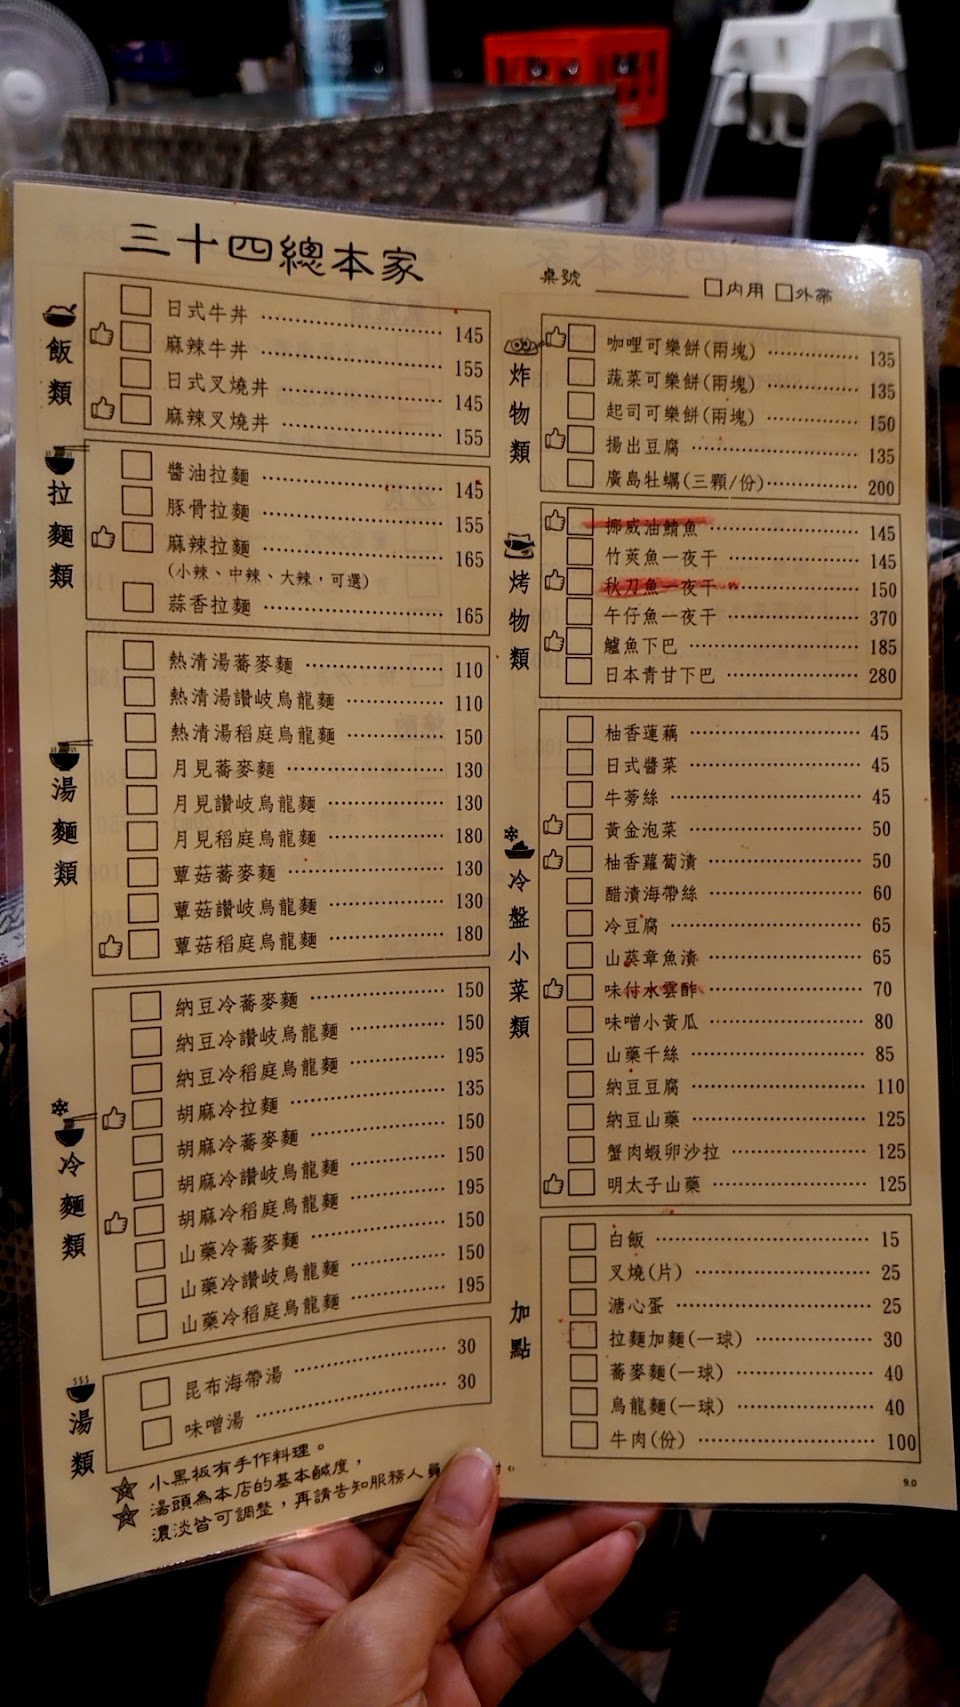 三十四總本家
桌號 ________ □內用 □外帶
飯類
日式牛丼 145
麻辣牛丼 155
日式叉燒丼 145
麻辣叉燒丼 155
拉麵類
醬油拉麵 145
豚骨拉麵 155
麻辣拉麵 165
(小辣、中辣、大辣，可選)
蒜香拉麵 165
湯麵類
熱清湯蕎麥麵 110
熱清湯讚岐烏龍麵 110
熱清湯稻庭烏龍麵 150
月見蕎麥麵 130
月見讚岐烏龍麵 130
月見稻庭烏龍麵 180
蕈菇蕎麥麵 130
蕈菇讚岐烏龍麵 130
蕈菇稻庭烏龍麵 180
冷麵類
納豆冷蕎麥麵 150
納豆冷讚岐烏龍麵 150
納豆冷稻庭烏龍麵 195
胡麻冷拉麵 135
胡麻冷蕎麥麵 150
胡麻冷讚岐烏龍麵 150
胡麻冷稻庭烏龍麵 195
山藥冷蕎麥麵 150
山藥冷讚岐烏龍麵 150
山藥冷稻庭烏龍麵 195
湯類
昆布海帶湯 30
味噌湯 30
小黑板有手作料理。
湯頭為本店的基本鹹度，
濃淡皆可調整，再請告知服務人員
炸物類
咖哩可樂餅(兩塊) 135
蔬菜可樂餅(兩塊) 135
起司可樂餅(兩塊) 150
揚出豆腐 135
廣島牡蠣(三顆/份) 200
烤物類
挪威油鯖魚 145
竹莢魚一夜干 145
秋刀魚一夜干 150
午仔魚一夜干 370
鱸魚下巴 185
日本青甘下巴 280
冷盤小菜類
柚香蓮藕 45
日式醬菜 45
牛蒡絲 45
黃金泡菜 50
柚香蘿蔔漬 50
醋漬海帶絲 60
冷豆腐 65
山葵章魚漬 65
味付水雲酢 70
味噌小黃瓜 80
山藥千絲 85
納豆豆腐 110
納豆山藥 125
蟹肉蝦卵沙拉 125
明太子山藥 125
加點
白飯 15
叉燒(片) 25
溏心蛋 25
拉麵加麵(一球) 30
蕎麥麵(一球) 40
烏龍麵(一球) 40
牛肉(份) 100
9.0